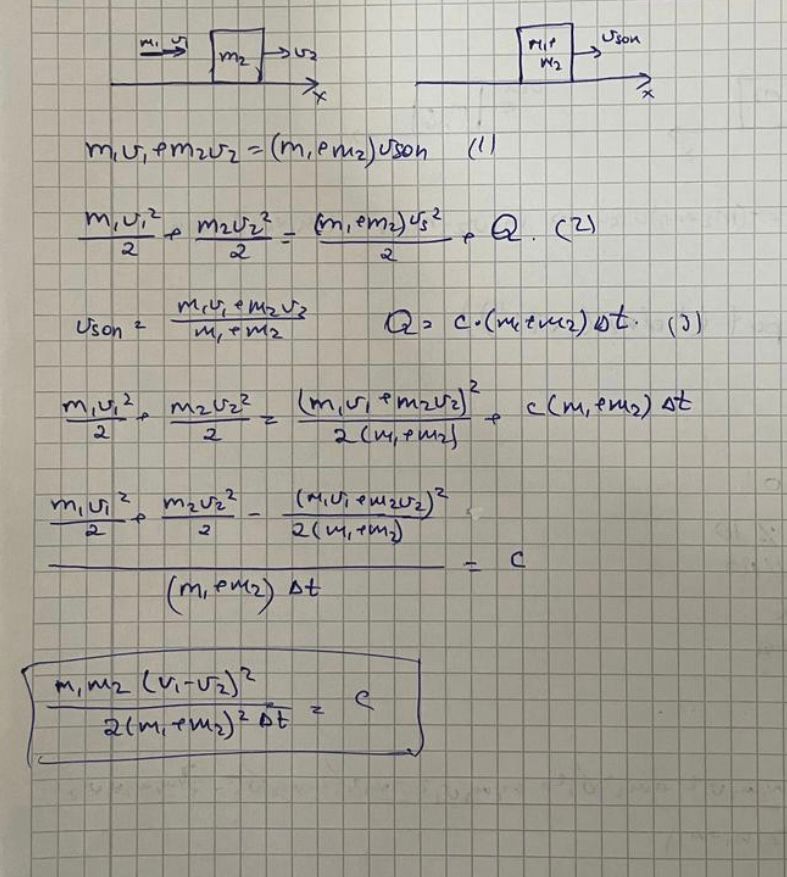 m₁ v₁ m₂ v₂ x m₁+ m₂ υson x
m₁υ₁+m₂υ₂=(m₁+m₂)υson (1)
m₁υ₁²/2 + m₂υ₂²/2 = (m₁+m₂)υs²/2 + Q. (2)
υson = m₁υ₁+m₂υ₂/m₁+m₂ Q= c·(m₁+m₂) Δt. (3)
m₁υ₁²/2 + m₂υ₂²/2 = (m₁υ₁+m₂υ₂)²/2(m₁+m₂) + c(m₁+m₂) Δt
m₁υ₁²/2 + m₂υ₂²/2 - (m₁υ₁+m₂υ₂)²/2(m₁+m₂)
= c
(m₁+m₂) Δt
m₁m₂ (υ₁-υ₂)²/2(m₁+m₂)² Δt = c